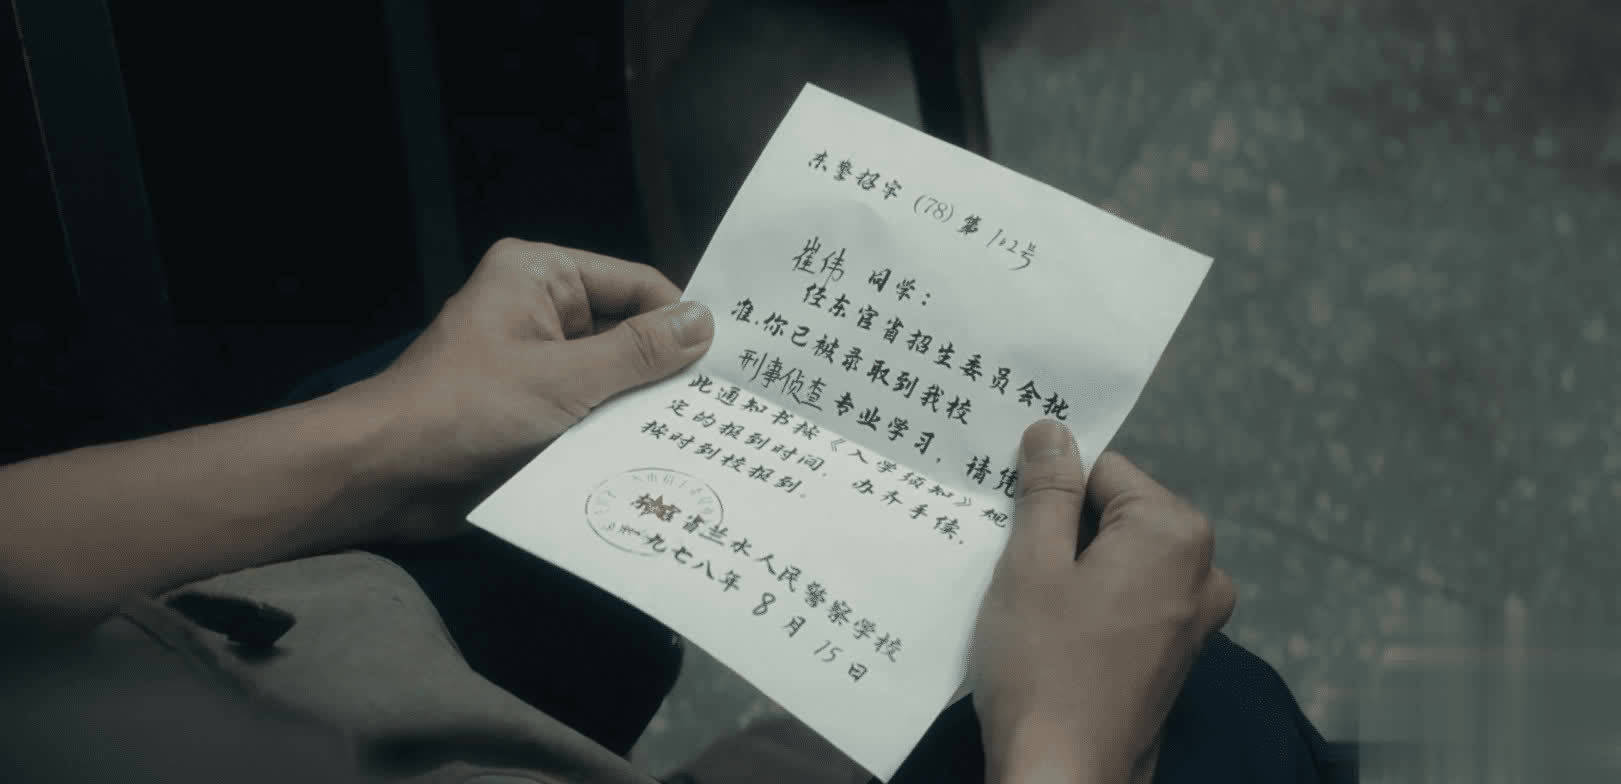 东警招字(78)第102号
崔伟 同学：
经东官省招生委员会批
准.你已被录取到我校
刑事侦查专业学习，请凭
此通知书按《入学须知》规
定的报到时间，办齐手续，
按时到校报到。
东官省兰水人民警察学校
一九七八年8月15日